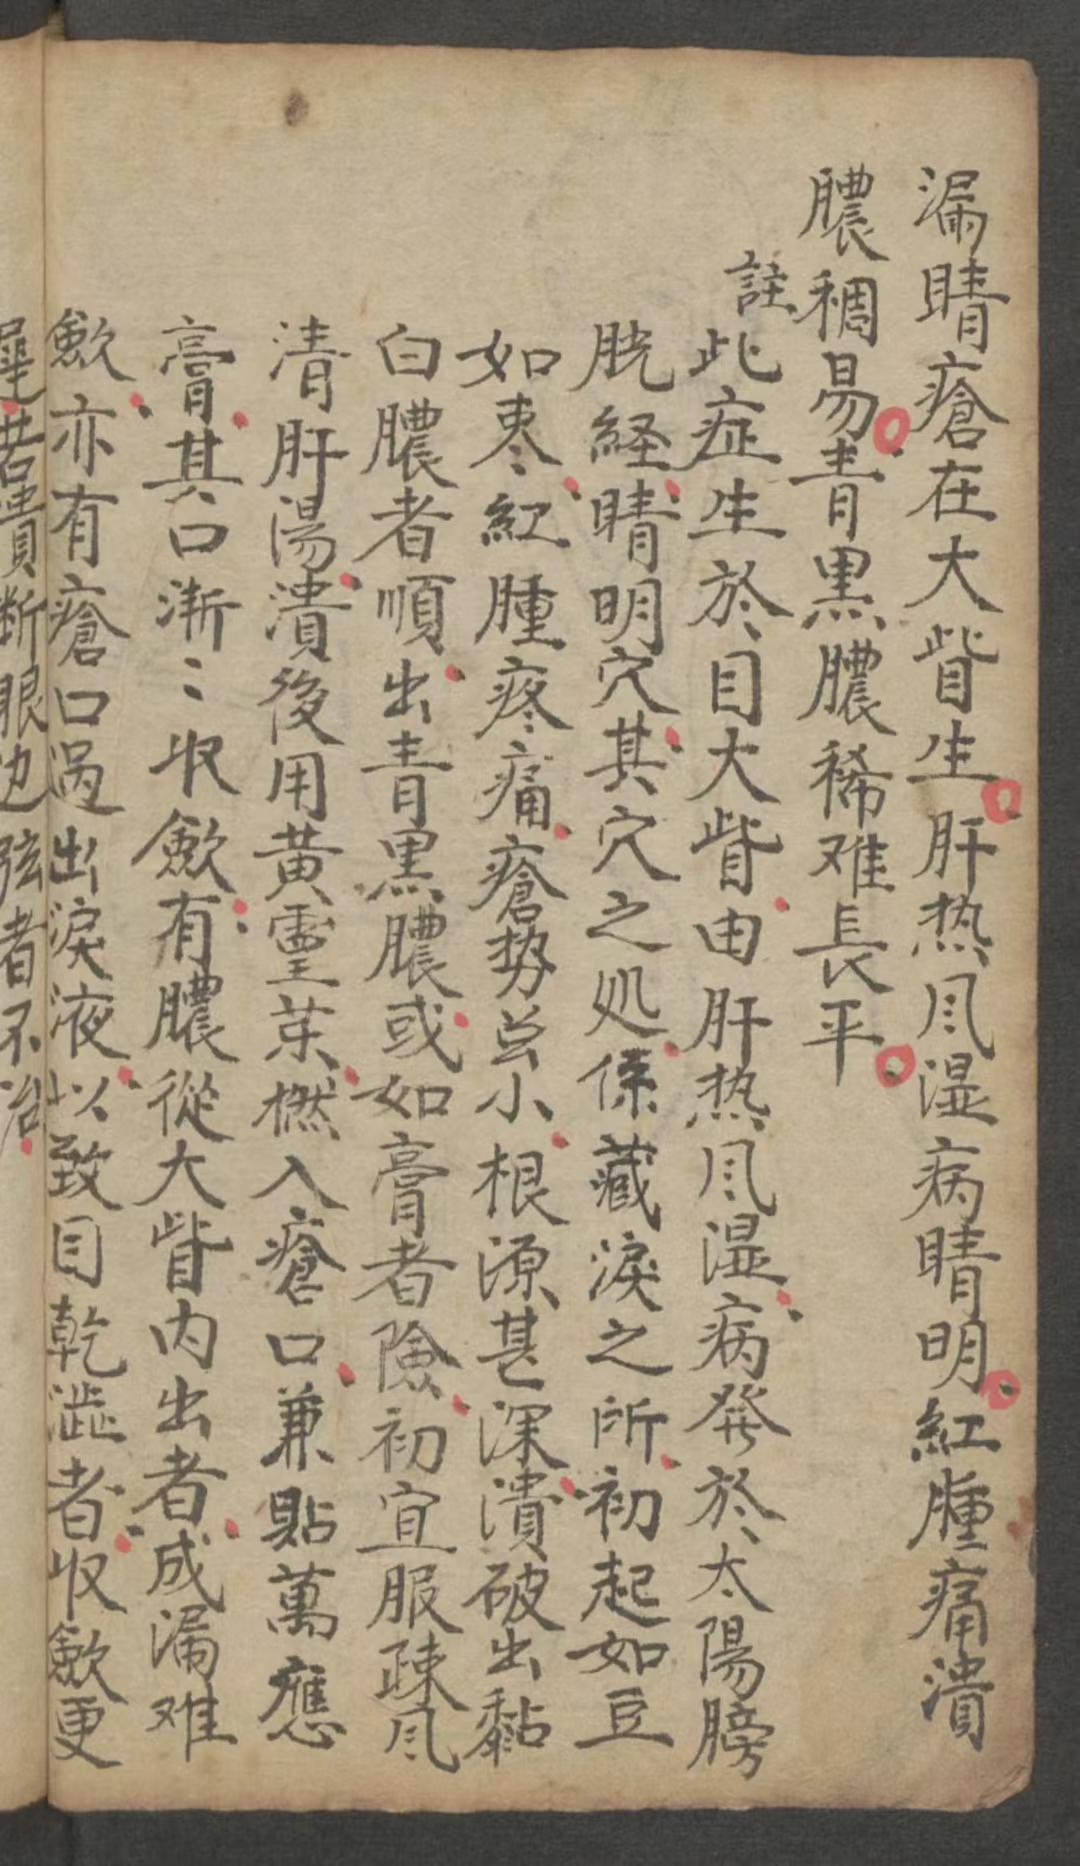 漏睛瘡在大眥生肝热风湿病睛明紅腫痛潰
膿稠易青黒膿稀难長平
註
此症生於目大眥由肝热风湿病発於太陽膀
胱経睛明穴其穴之処係藏淚之所初起如豆
如枣紅腫疼痛瘡势虽小根源甚深潰破出黏
白膿者順出青黒膿或如膏者險初宜服疎风
清肝湯潰後用黃靈藥撚入瘡口兼貼萬應
膏其口漸〻収歛有膿從大眥内出者成漏难
歛亦有瘡口過出淚液以致目乾澁者収歛更
遲若潰断眼边弦者不治